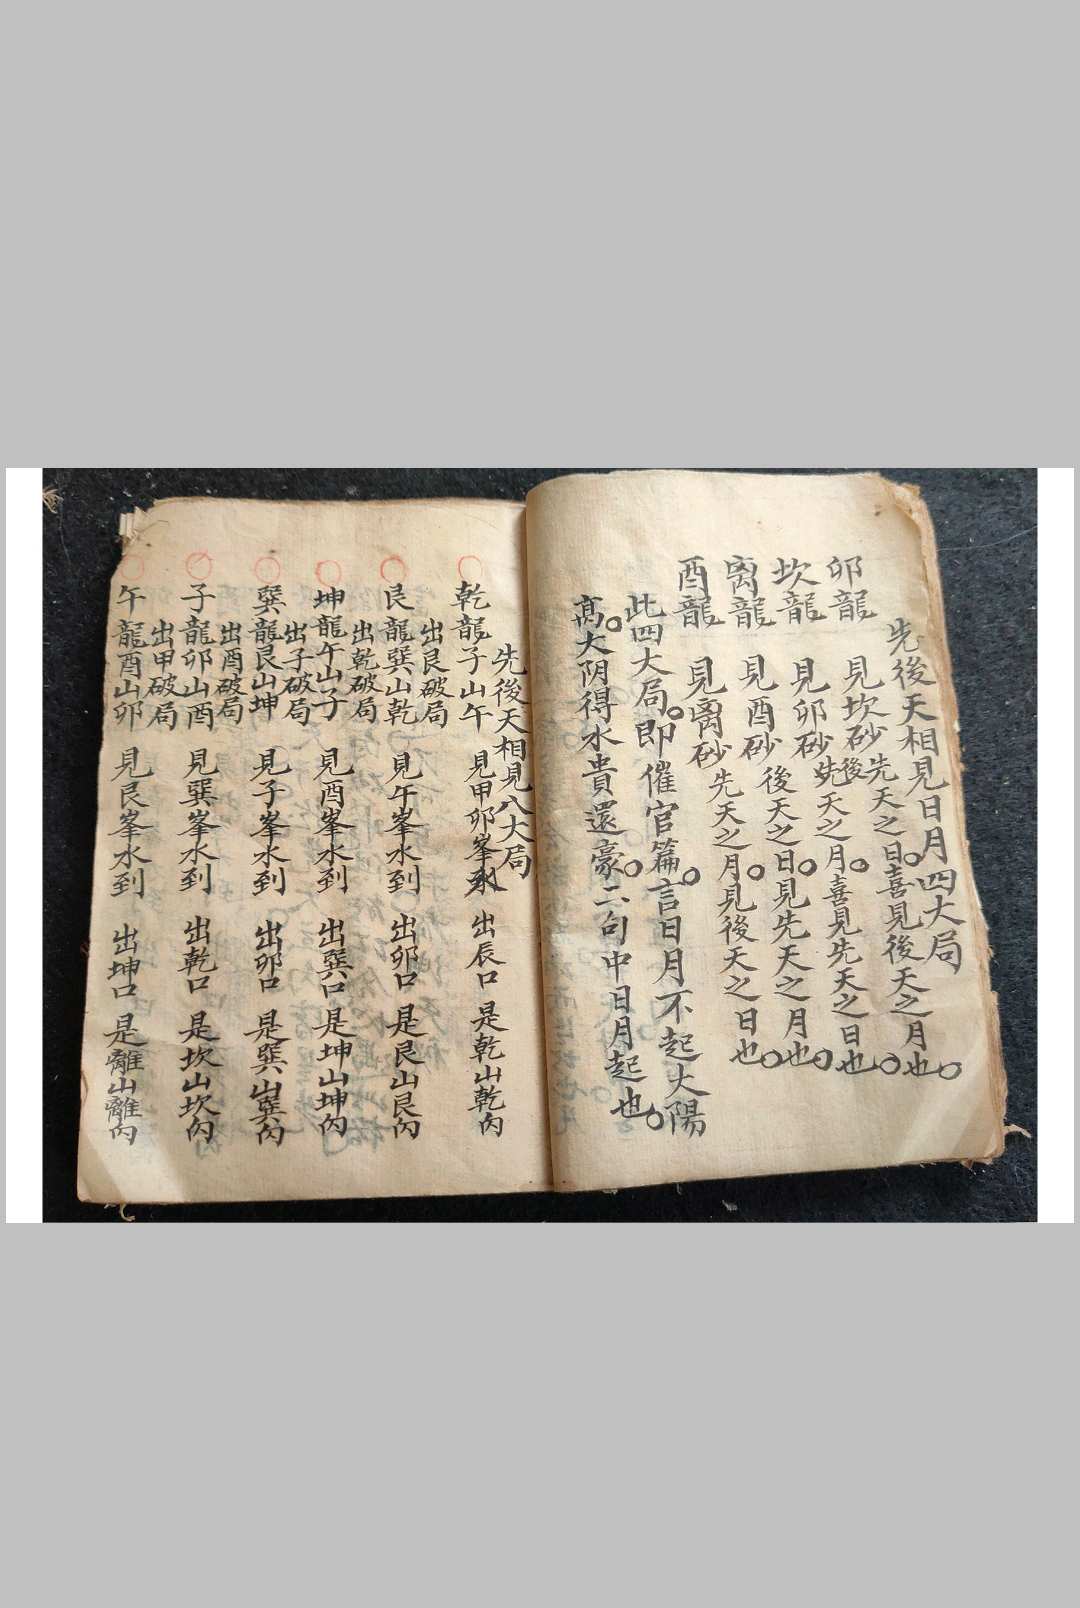 先後天相見日月四大局
卯龍 見坎砂 先天之日喜見後天之月也
坎龍 見卯砂 後天之月喜見先天之日也
离龍 見酉砂 後天之日見先天之月也
酉龍 見离砂 先天之月見後天之日也
此四大局即催官篇言日月不起大陽
高大阴得水貴還豪二句中日月起也
先後天相見八大局
乾龍子山午 見甲卯峯水到 出辰口 是乾山乾向
出艮破局
艮龍巽山乾 見午峯水到 出卯口 是艮山艮向
出乾破局
坤龍午山子 見酉峯水到 出巽口 是坤山坤向
出子破局
巽龍艮山坤 見子峯水到 出卯口 是巽山巽向
出酉破局
子龍卯山酉 見巽峯水到 出乾口 是坎山坎向
出甲破局
午龍酉山卯 見艮峯水到 出坤口 是離山離向